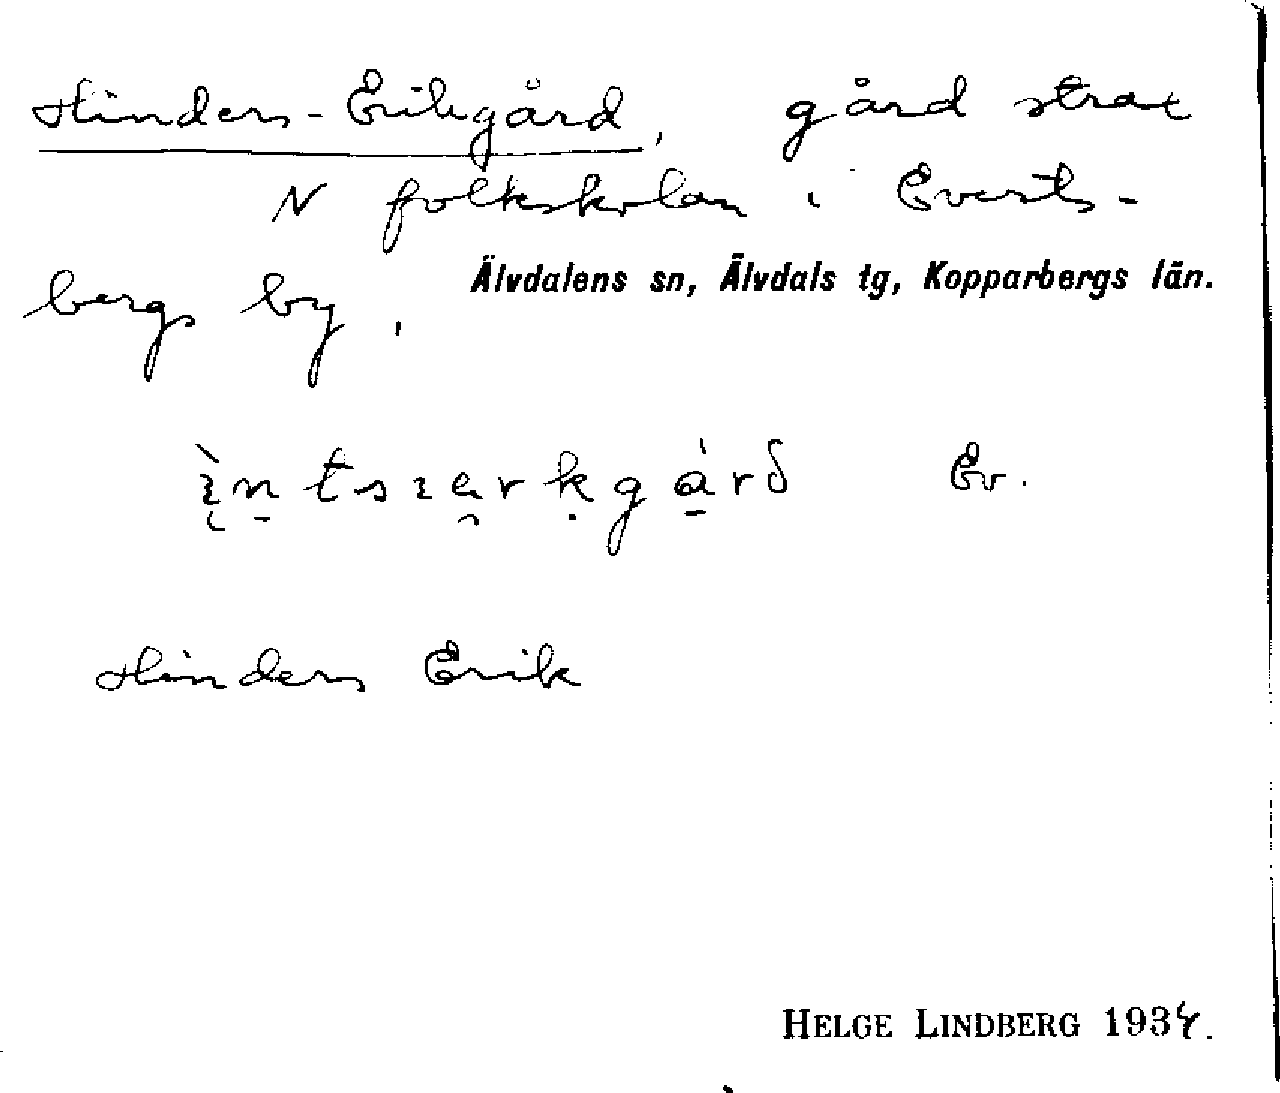 Hinders-Eriksgård, gård strax
N folkskolan i Everts-
bergs by.
Älvdalens sn, Älvdals tg, Kopparbergs län.
Ev.
Hinders Erik
HELGE LINDBERG 1934.